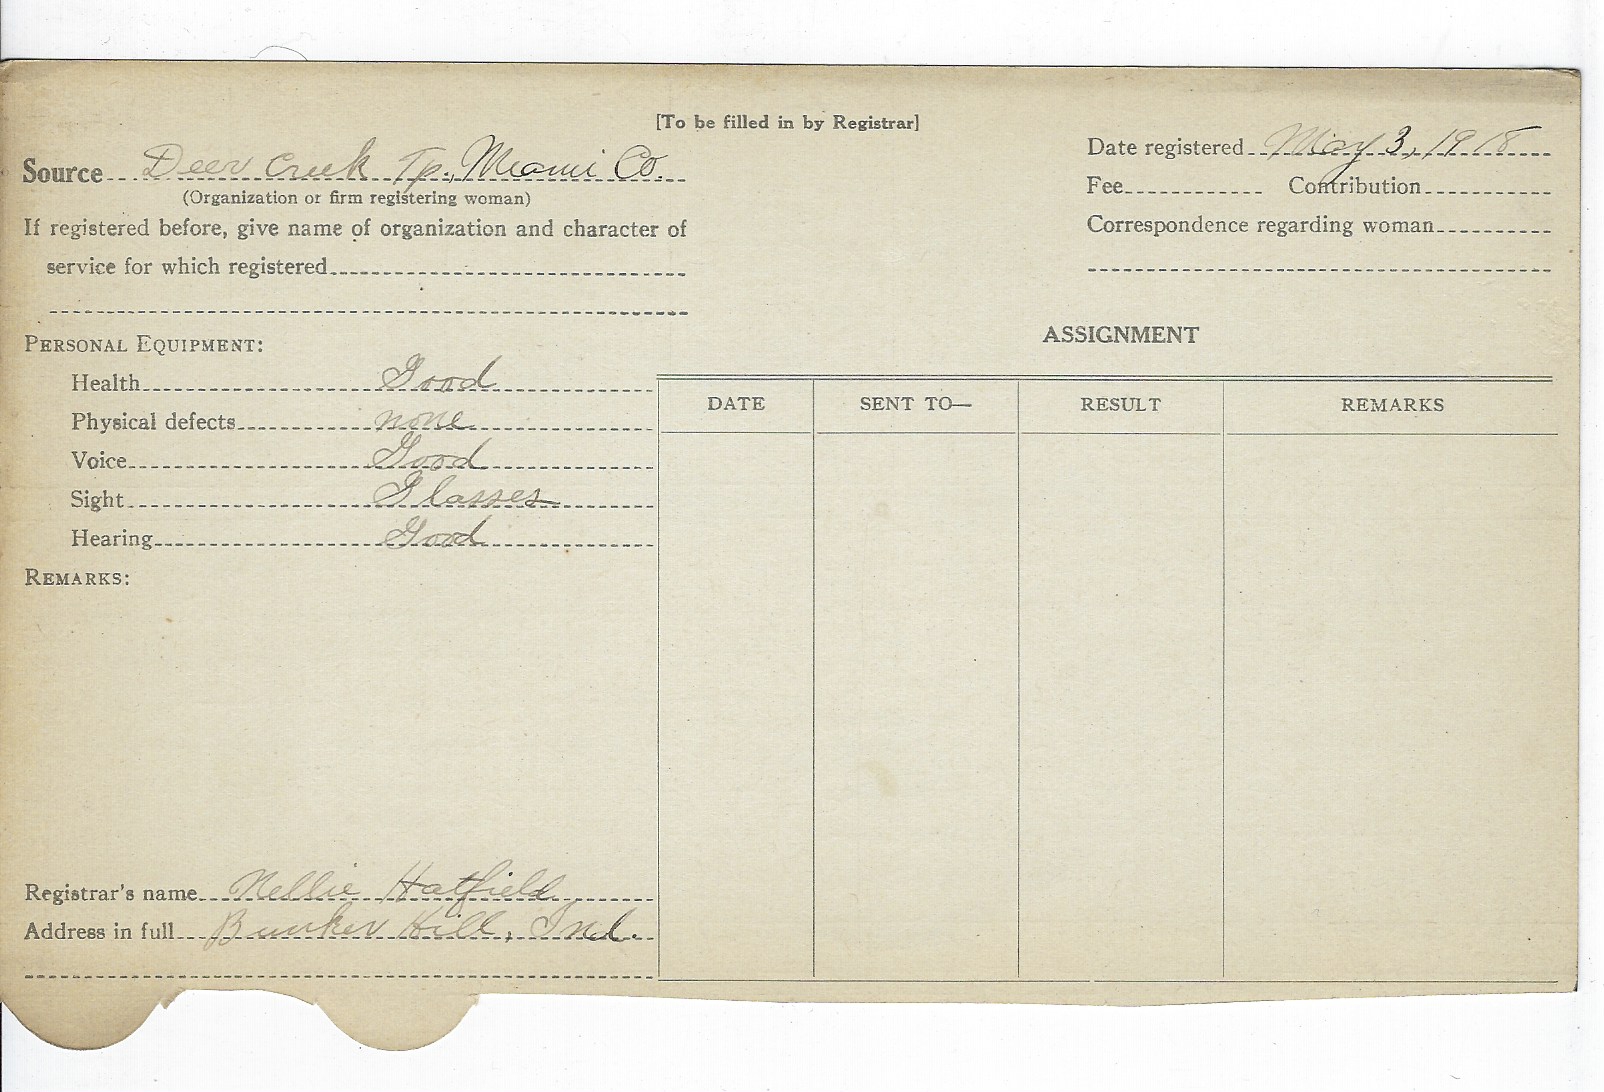 [To be filled in by Registrar]
Source Deer Creek Tp., Miami Co.
(Organization or firm registering woman)
If registered before, give name of organization and character of
service for which registered
Date registered May 3, 1918
Fee Contribution
Correspondence regarding woman
PERSONAL EQUIPMENT:
Health Good
Physical defects none
Voice Good
Sight Glasses
Hearing Good
REMARKS:
ASSIGNMENT
DATE SENT TO— RESULT REMARKS
Registrar's name Nellie Hatfield
Address in full Bunker Hill, Ind.